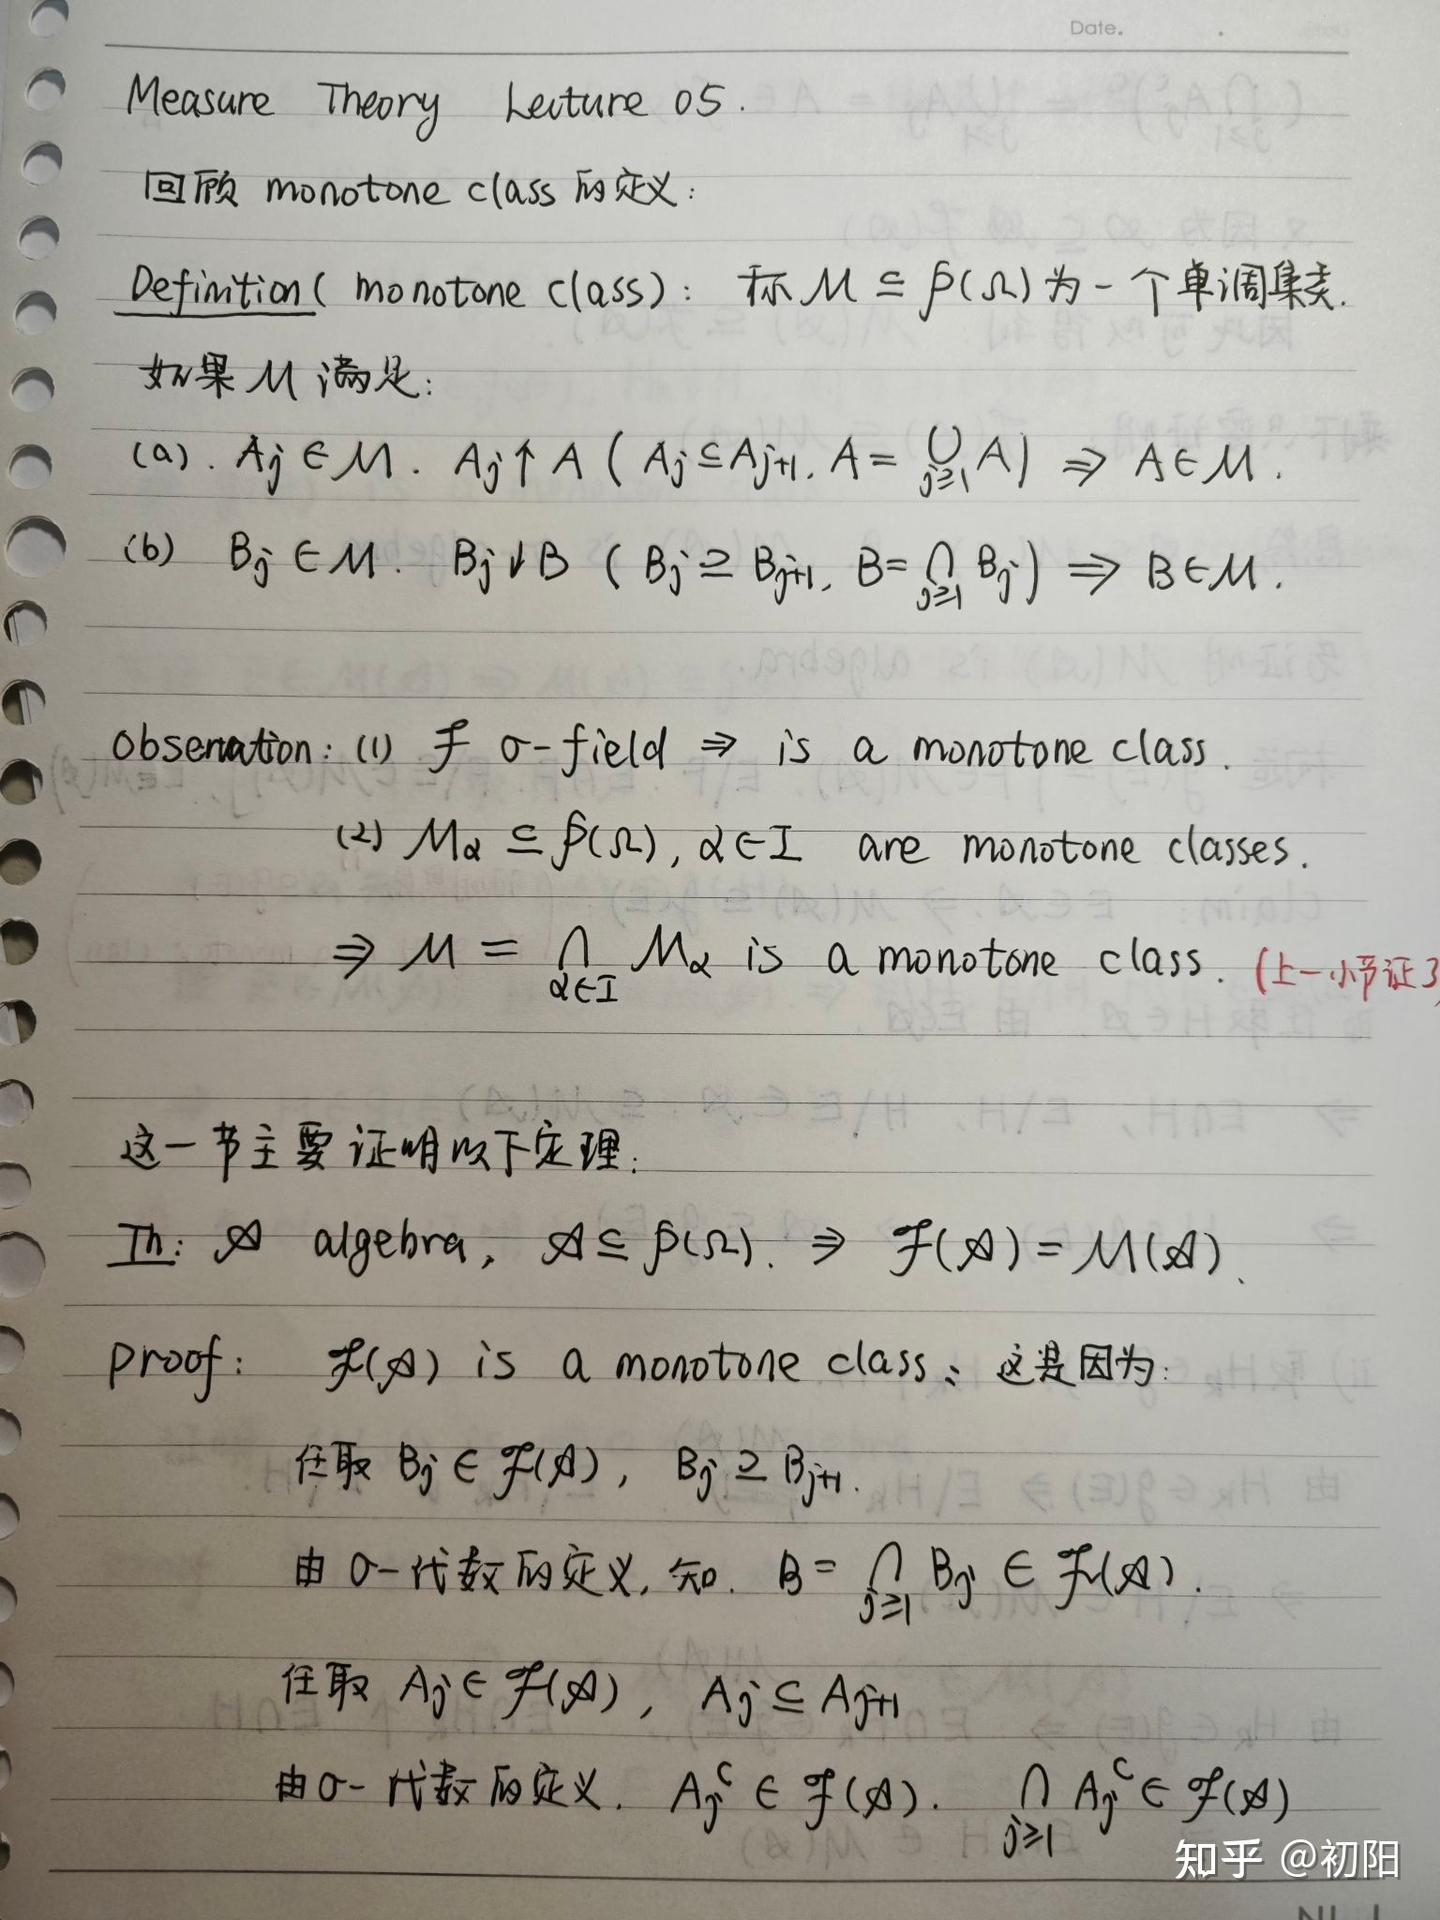 Date.
Measure Theory Lecture 05.
回顾 monotone class 的定义:
Definition ( monotone class ): 称 M ⊆ P(Ω) 为一个单调集类.
如果 M 满足:
(a). Aj ∈ M. Aj ↑ A ( Aj ⊆ Aj+1, A = ⋃j≥1 A ) ⇒ A ∈ M.
(b) Bj ∈ M. Bj ↓ B ( Bj ⊇ Bj+1, B = ⋂j≥1 Bj ) ⇒ B ∈ M.
Observation: (1) F σ-field ⇒ is a monotone class.
(2) Mα ⊆ P(Ω), α ∈ I are monotone classes.
⇒ M = ⋂α∈I Mα is a monotone class. (上一小节证了)
这一节主要证明以下定理:
Th: A algebra, A ⊆ P(Ω). ⇒ F(A) = M(A).
Proof: F(A) is a monotone class、这是因为:
任取 Bj ∈ F(A), Bj ⊇ Bj+1.
由 σ-代数的定义, 知. B = ⋂j≥1 Bj ∈ F(A).
任取 Aj ∈ F(A), Aj ⊆ Aj+1
由σ-代数的定义. Aj^c ∈ F(A). ⋂j≥1 Aj^c ∈ F(A)
知乎 @初阳